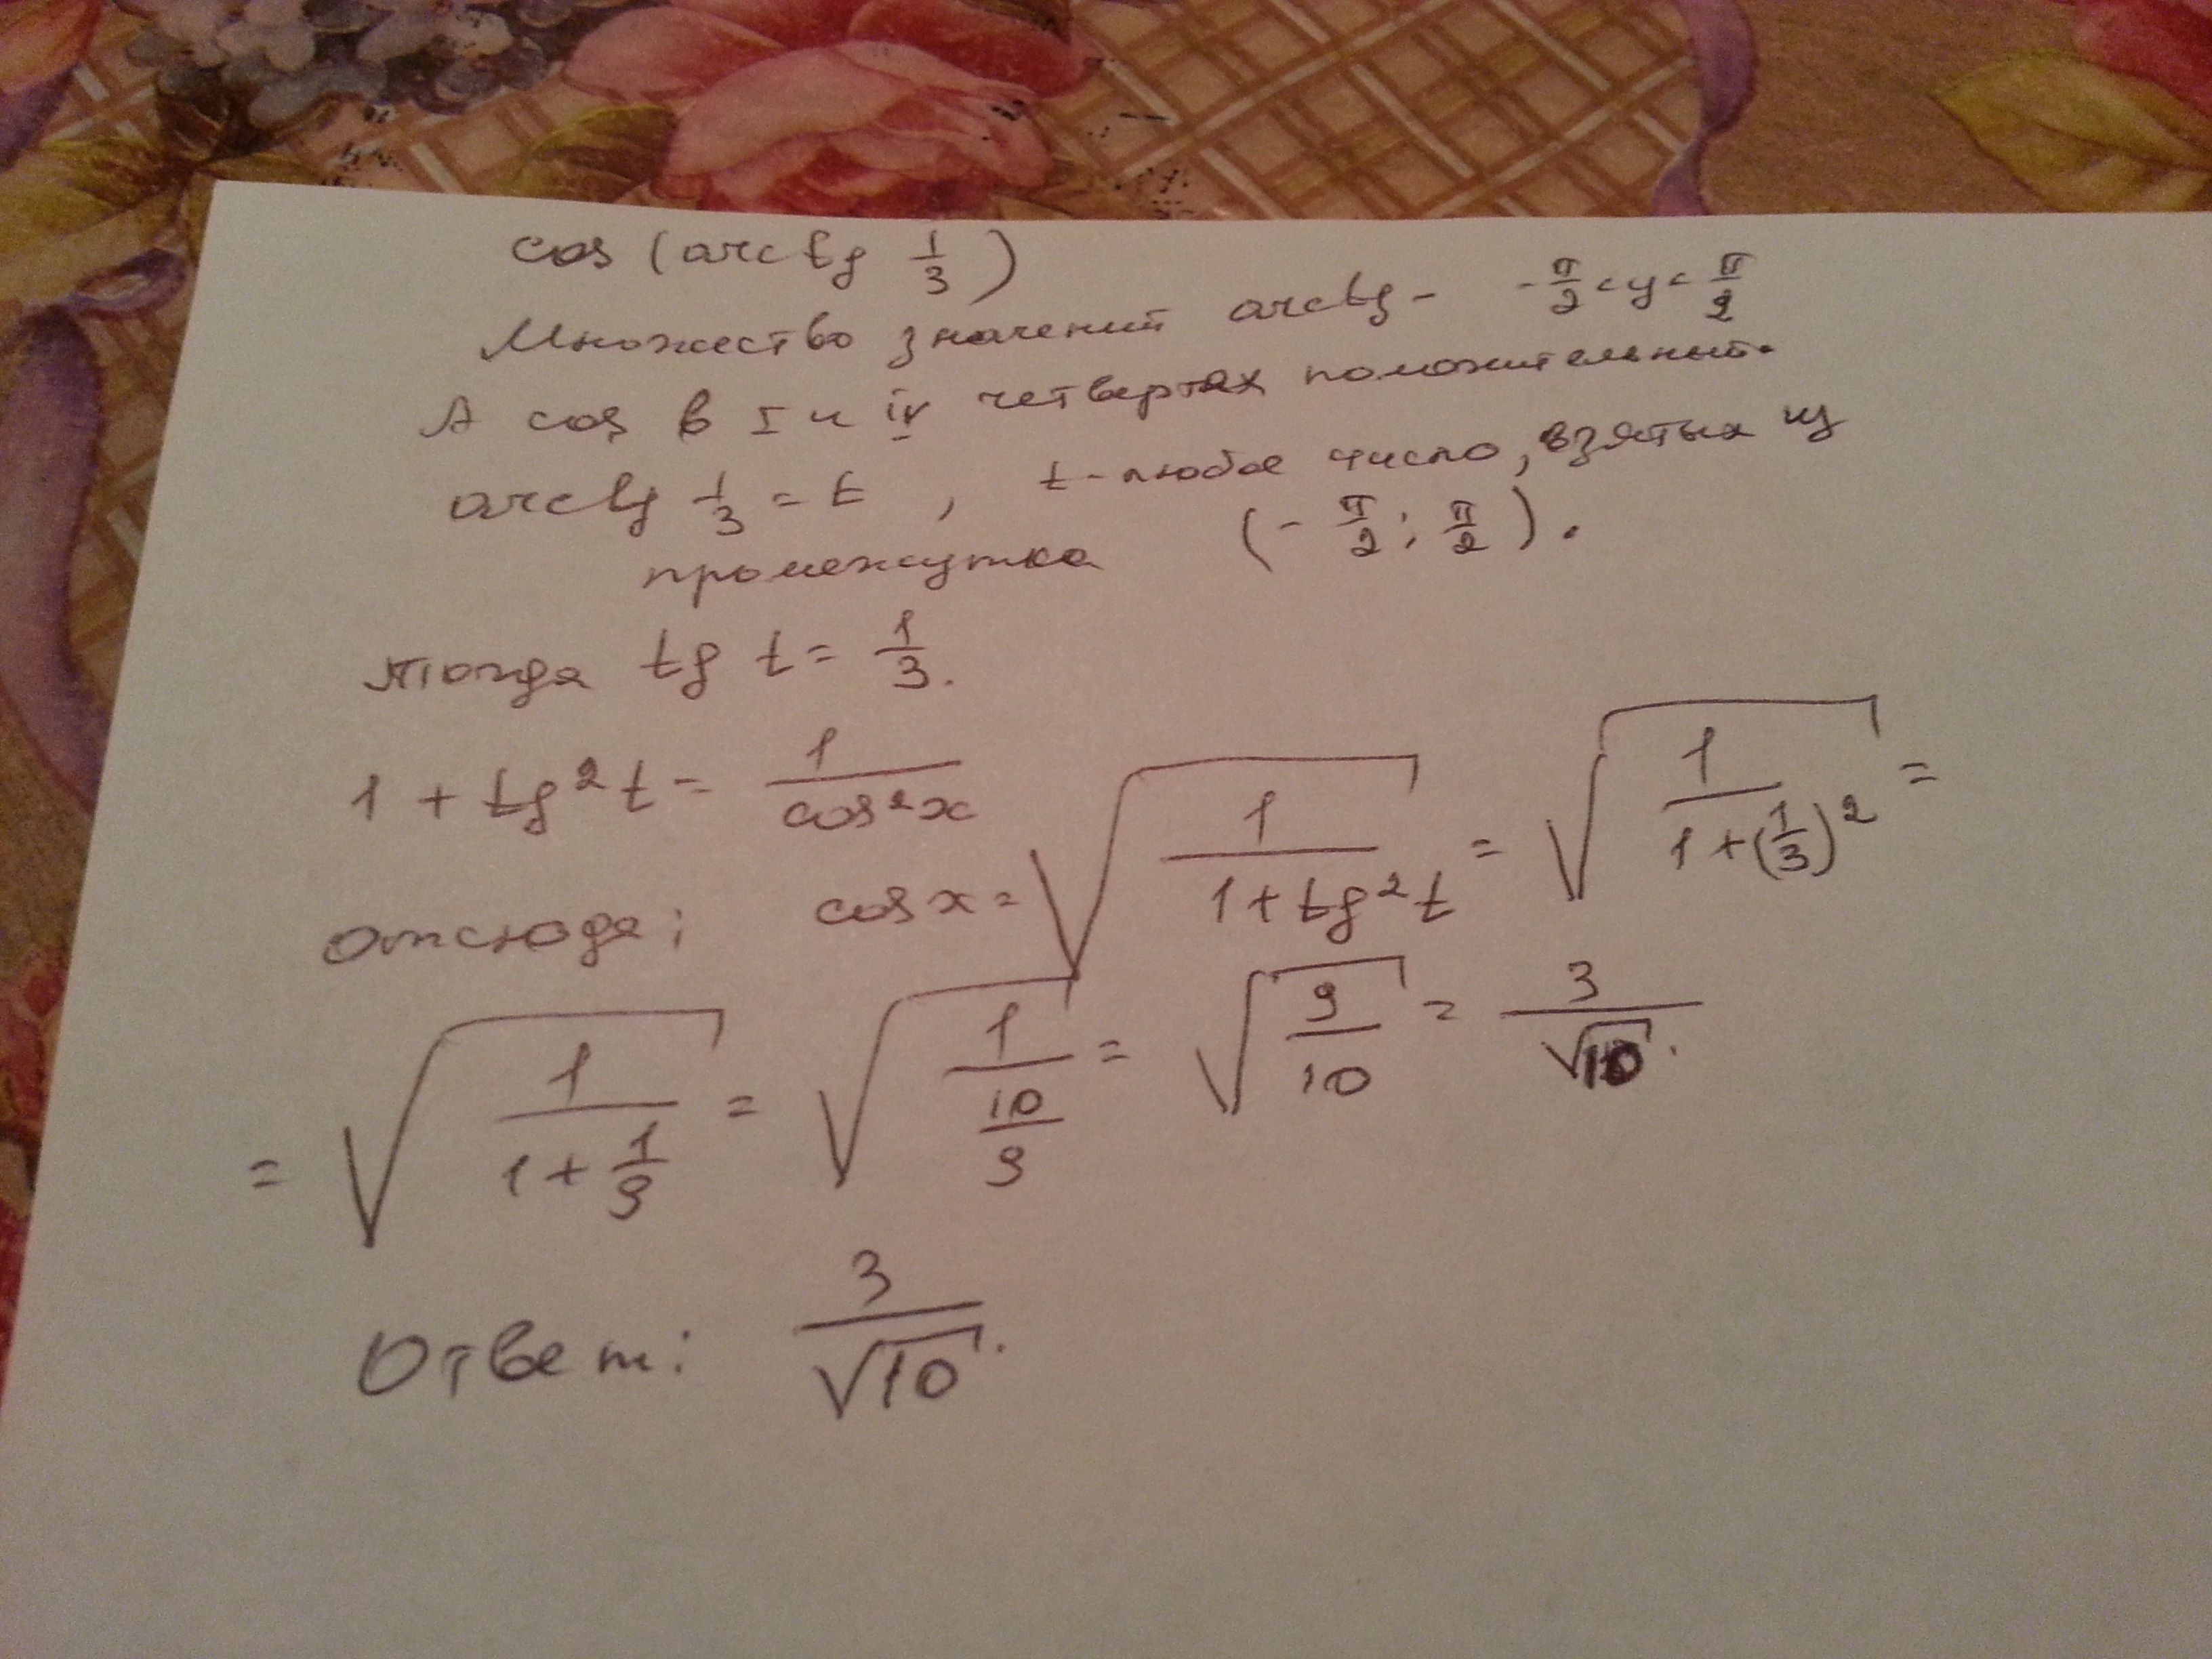 cos (arctg 1/3)
Множество значений arctg - -π/2 < y < π/2
А cos в I и IV четвертях положительный.
arctg 1/3 = t , t - любое число, взятых из
промежутка (-π/2; π/2).
тогда tg t = 1/3.
1 + tg²t = 1/cos²x
Отсюда; cos x = √(1/(1+tg²t)) = √(1/(1+(1/3)²)) =
= √(1/(1+1/9)) = √(1/(10/9)) = √(9/10) = 3/√10.
Ответ: 3/√10.